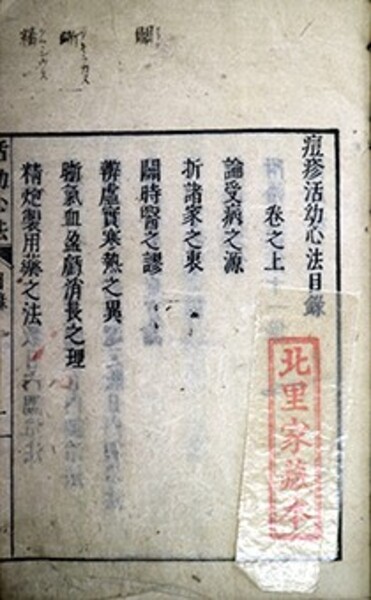 痘疹活幼心法目錄
卷之上
論受病之源
折諸家之衷
闢時醫之謬
辨虛實寒熱之異
晰氣血盈虧消長之理
精炮製用藥之法
活幼心法
目錄
一
北里家藏本
闢
晰
精